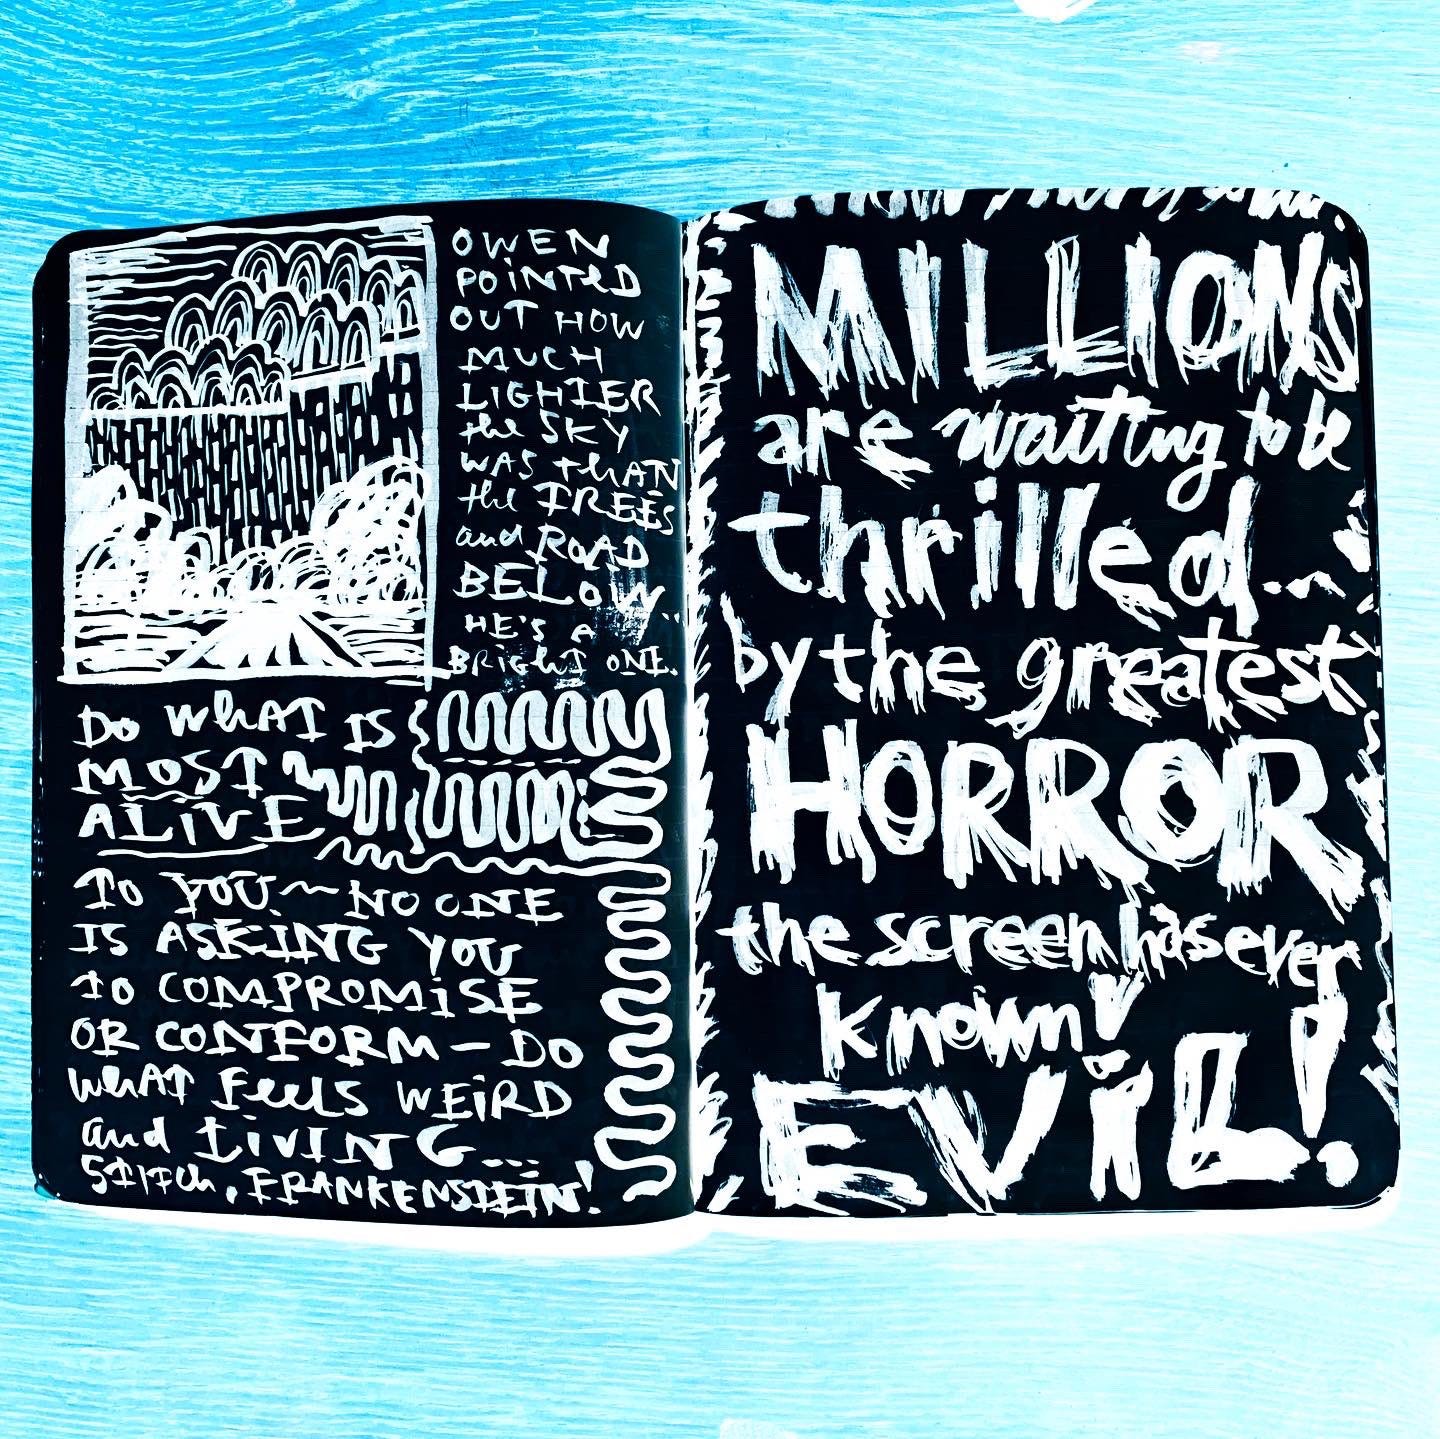 OWEN
POINTED
OUT HOW
MUCH
LIGHTER
the SKY
WAS thAN
the TREES
and ROAD
BELOW..
HE'S A
BRiGhT ONE.
DO WhAT IS
MOST
ALiVE
TO YOU ~ NO ONE
IS ASKING YOU
TO COMPROMiSE
OR CONFORM - DO
WhAT FEELS WEiRD
and LiViNG...
STiTCh, FRANKENSTEIN!
MILLIONS
are waiting to be
thrilled...
by the greatest
HORROR
the screen has ever
known!
EViL!